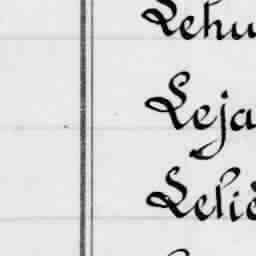 Lehu
Leja
Leliè